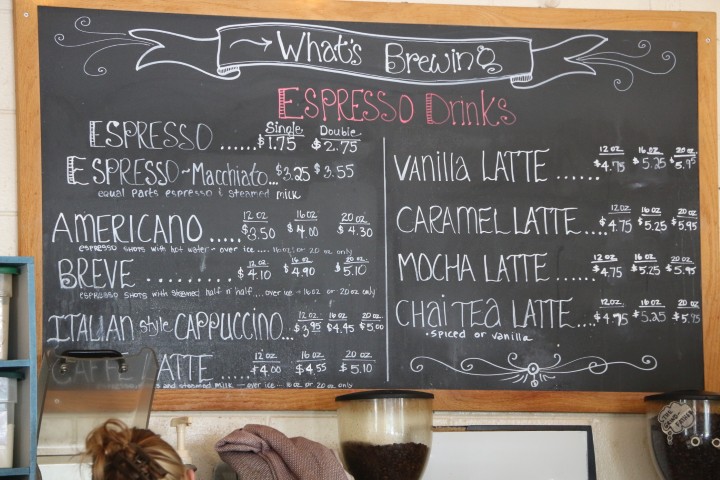 What's Brewing
ESPRESSO Drinks
Single Double
ESPRESSO ...... $1.75 $2.75
ESPRESSO ~ Macchiato... $3.25 $3.55
equal parts espresso & steamed milk
12 oz 16 oz 20 oz
AMERICANO ..... $3.50 $4.00 $4.30
espresso shots with hot water - over ice .... 16 oz or 20 oz only
12 oz 16 oz 20 oz
BREVE ......... $4.10 $4.90 $5.10
espresso shots with steamed half n' half.... over ice - 16 oz or 20 oz only
12 oz 16 oz 20 oz
ITALIAN style CAPPUCCINO... $3.95 $4.45 $5.00
12 oz 16 oz 20 oz
CAFFE LATTE ..... $4.00 $4.55 $5.10
and steamed milk - over ice - 16 oz or 20 oz only
12 oz 16 oz 20 oz
Vanilla LATTE ...... $4.75 $5.25 $5.95
12 oz 16 oz 20 oz
CARAMEL LATTE ..... $4.75 $5.25 $5.95
12 oz 16 oz 20 oz
MOCHA LATTE ...... $4.75 $5.25 $5.95
12 oz 16 oz 20 oz
Chai TEA LATTE .... $4.75 $5.25 $5.95
• spiced or vanilla